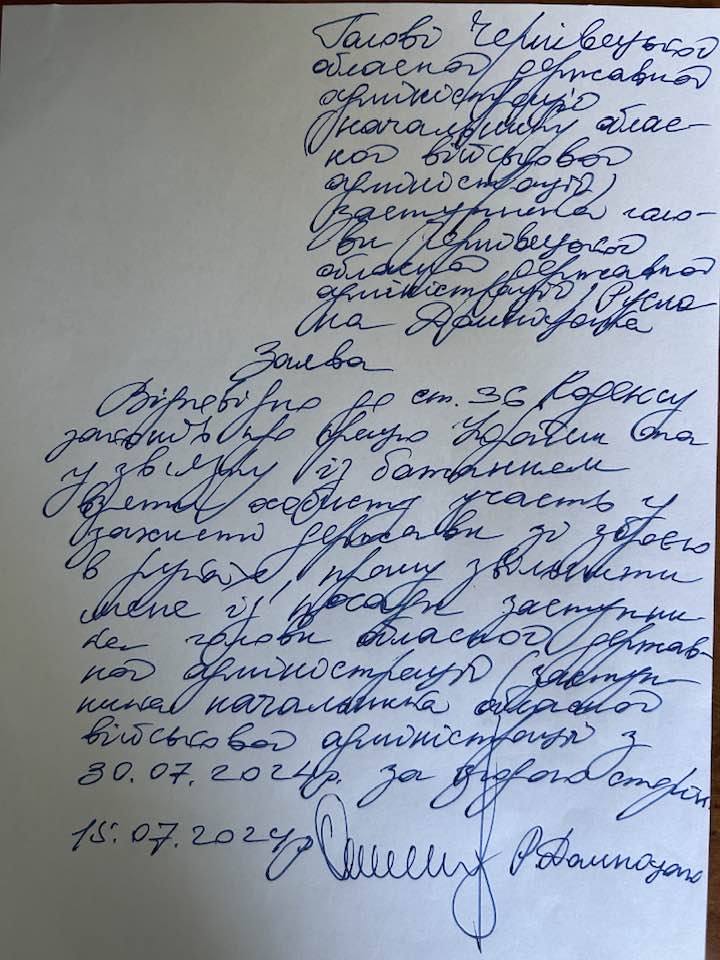 Голові Чернівецької
обласної державної
адміністрації
(начальнику облас-
ної військової
адміністрації)
заступника голо-
ви Чернівецької
обласної державної
адміністрації Русла
на
Заява
Відповідно до ст. 36 Кодексу
законів про працю України та
у звязку із бажанням
взяти особисту участь у
захисті держави зі зброєю
в руках, прошу звільнити
мене із посади заступни
ка голови обласної держав-
ної адміністрації (заступ-
ника начальника обласної
військової адміністрації з
30.07.2024р. за згодою сторін.
15.07.2024р